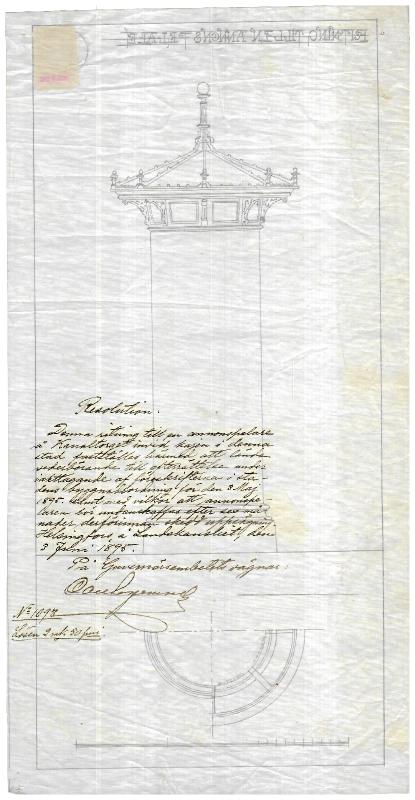 RITNING TILL EN ANNONS PELARE
Resolution.
Denna ritning till en annonspelare
å Kanaltorget invid kajen i denna
stad fastställes härmed att lända
vederbörande till efterrättelse under
iakttagande af föreskrifterna i sta-
dens byggnadsordning för den 3 Maj
1895 äfvensom vilkor att annonspe-
laren bör undanskaffas efter sex må-
nader, derförinnan skedd uppsägning.
Helsingfors, å Landskansliet, den
3 Juni 1895.
På Guvernörsembetets vägnar:
No 1098
Lösen 2 mk. 50 pni